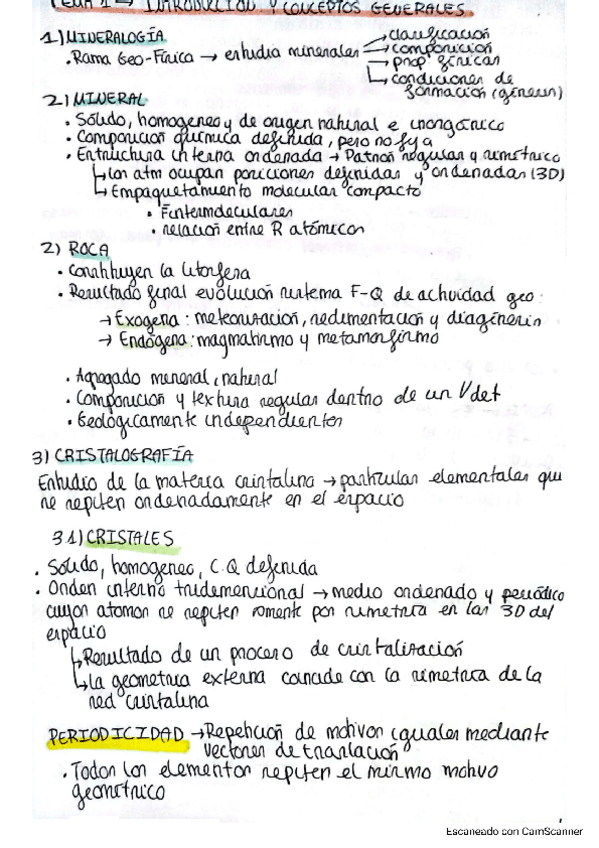 TEMA 1 → INTRODUCCIÓN Y CONCEPTOS GENERALES.
1) MINERALOGÍA
→ clasificación
. Rama Geo-Física → estudia minerales → composición
→ prop físicas
↳ condiciones de formación (génesis)
2) MINERAL
• Sólido, homogeneo y de origen natural e inorgánico
• Composición química definida, pero no fija
• Estructura interna ordenada → Patrón regular y simétrico
↳ los atm ocupan posiciones definidas y ordenadas (3D)
↳ Empaquetamiento molecular compacto
• Fintermoleculares
• relación entre R atómicos
2) ROCA
• Constituyen la litosfera
• Resultado final evolución sistema F-Q de actividad geo:
→ Exogena: meteorización, sedimentación y diagénesis
→ Endógena: magmatismo y metamorfismo
• Agregado mineral, natural
• Composición y textura regular dentro de un V det
• Geológicamente independientes
3) CRISTALOGRAFÍA
Estudio de la materia cristalina → partículas elementales que
se repiten ordenadamente en el espacio
3.1) CRISTALES
. Sólido, homogeneo, C.Q definida
. Orden interno tridimensional → medio ordenado y periódico
cuyos atomos se repiten somente por simetria en las 3D del
espacio
↳ Resultado de un proceso de cristalización
↳ la geometría externa coincide con la simetria de la
red cristalina
PERIODICIDAD → Repetición de motivos iguales mediante
vectores de traslación
. Todos los elementos repiten el mismo motivo
geométrico
Escaneado con CamScanner